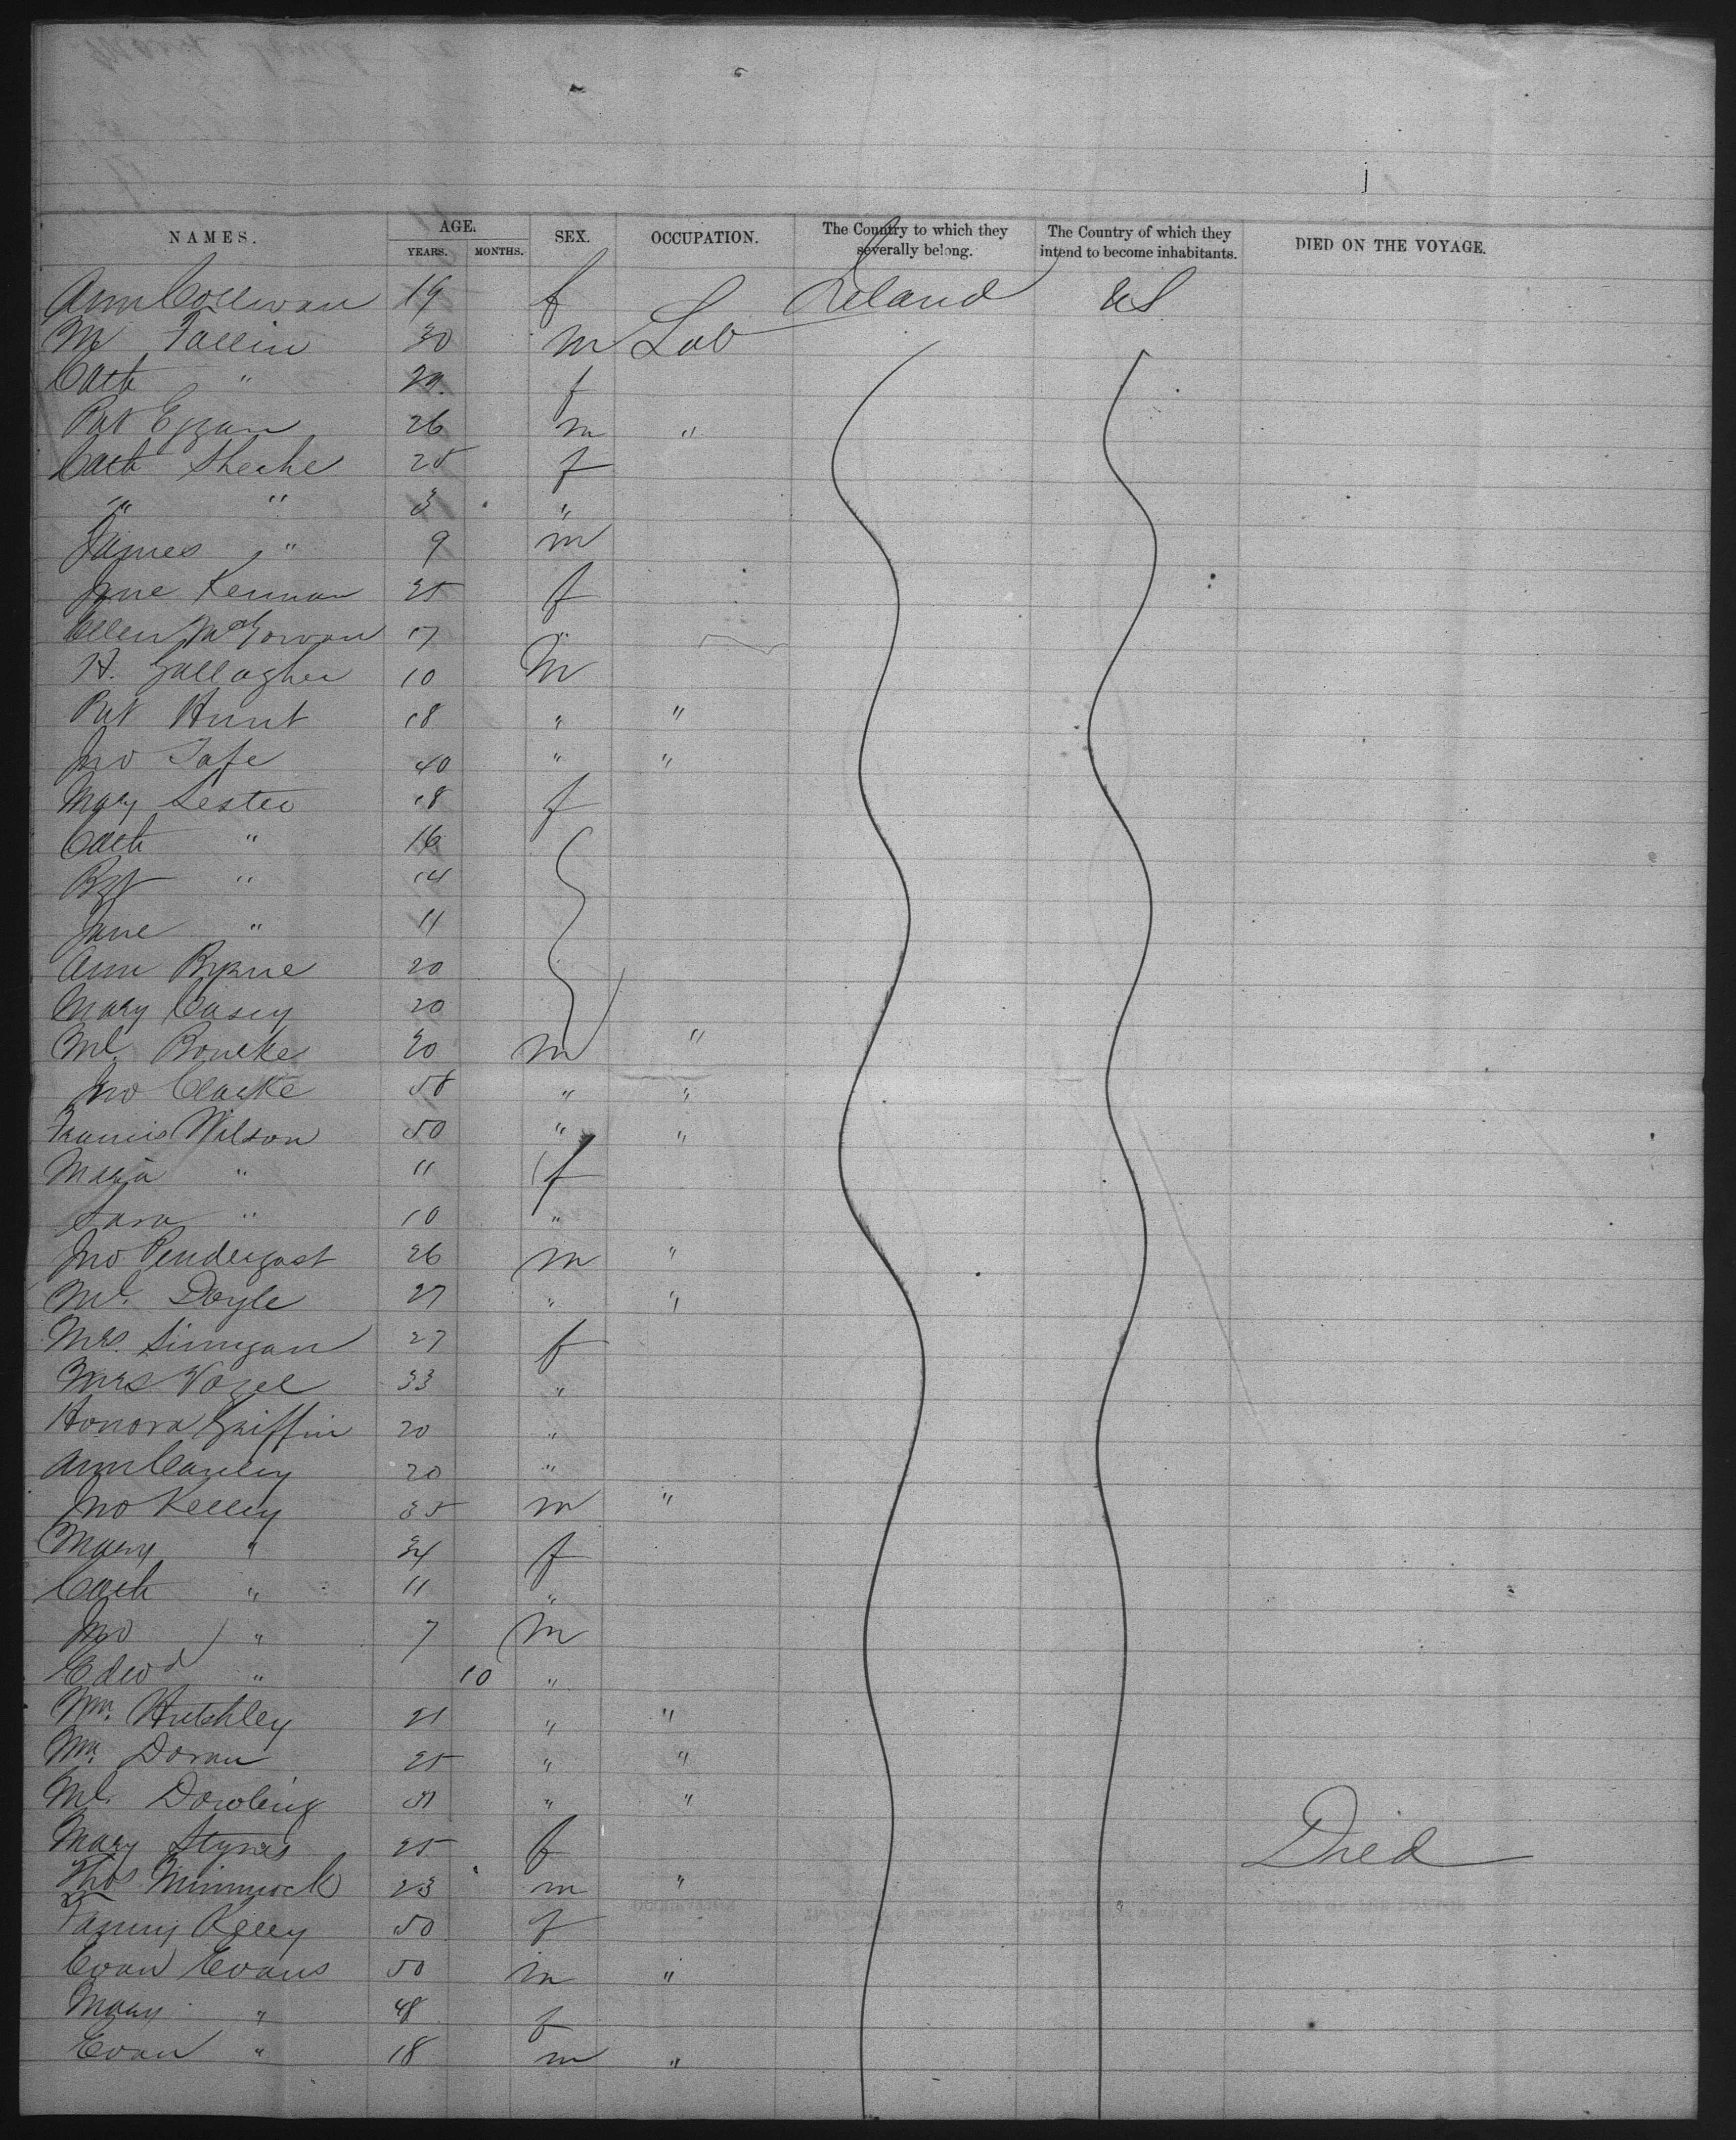 NAMES. AGE. YEARS. MONTHS. SEX. OCCUPATION. The Country to which they severally belong. The Country of which they intend to become inhabitants. DIED ON THE VOYAGE.
Ann 19 f Ireland US
M Fallin 30 m Lab
Cath " 29 f
Pat Eggan 26 m "
Cath Sheahe 25 f
" " 3 "
James " 9 m
Jane Kennan 25 f
Ellen McGowan 17 "
H. Gallagher 10 m
Pat Hunt 18 " "
Jno Tafe 40 " "
Mary 18 f
Cath " 16
Bgt " 14
Jane " 11
Ann Byrne 20
Mary Casey 20
Ml. Bourke 30 m "
Jno Clarke 58 " "
Francis Wilson 50 " "
Maria " 11 f
Sara " 10 "
Jno Pendergast 26 m "
Ml. Doyle 27 " "
Mrs. Finnigan 27 f
Mrs Vogel 33 "
Honora Griffin 20 "
Ann 20 "
Jno Kelley 35 m "
Mary " 34 f
Cath " 11 "
Jno " 7 m
Edwd " 10 "
Wm. Hutchley 21 " "
Wm. Doran 25 " "
Ml. Dowling " "
Mary Stynes 25 f Died
Thos 23 m "
Fanny Kelly 50 f
Evan Evans 50 m "
Mary " 48 f
Evan " 18 m "